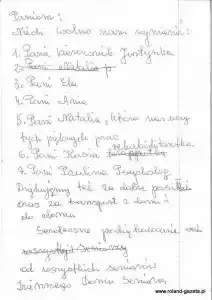 Paniom:
Niech wolno nam wymienić:
1. Pani Kierownik Justynka
2. Pani Natalia p
3. Pani Ela
4. Pani Ania
5. Pani Natalia, która nas uczy
tych pięknych prac
rehabilitantka
6. Pani Kasia
7. Pani Paulina Psycholog
Dziękujemy też za dobre posiłki
oraz za transport z domu i
do domu
Serdeczne podziękowanie od
naszych Seniorzy
od wszystkich seniorów
Dziennego Domu Seniora
www.roland-gazeta.pl